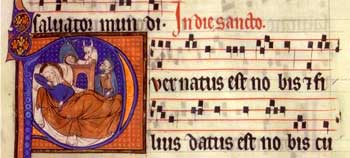 Salvator mun di. In die sancto.
P
uer natus est no bis et fi
lius datus est no bis cu